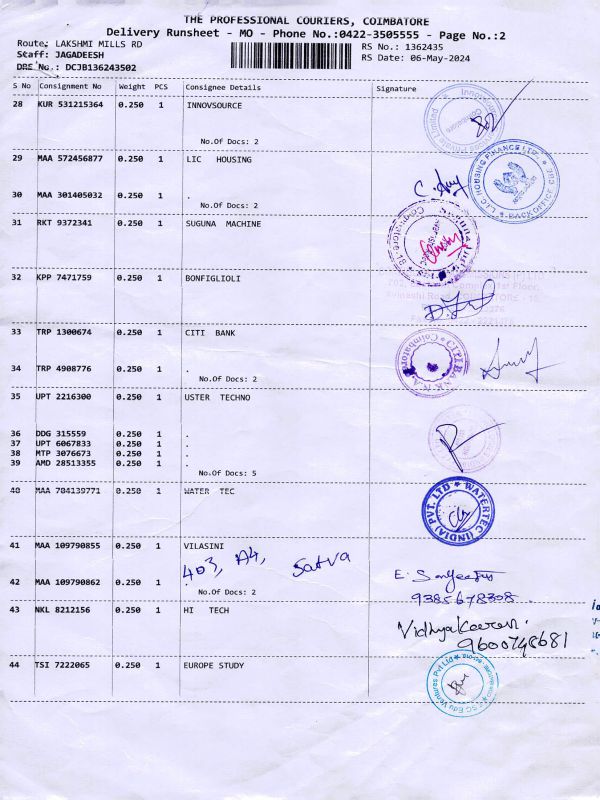 THE PROFESSIONAL COURIERS, COIMBATORE
Delivery Runsheet - MO - Phone No.:0422-3505555 - Page No.:2
Route: LAKSHMI MILLS RD
RS No.: 1362435
Staff: JAGADEESH
RS Date: 06-May-2024
DRS No.: DCJB136243502
S No Consignment No Weight PCS Consignee Details Signature
28 KUR 531215364 0.250 1 INNOVSOURCE
No.Of Docs: 2
29 MAA 572456877 0.250 1 LIC HOUSING
LIC HOUSING FINANCE LTD.
BACK OFFICE
30 MAA 301405032 0.250 1 .
No.Of Docs: 2
31 RKT 9372341 0.250 1 SUGUNA MACHINE
Suguna
Coimbatore-18
32 KPP 7471759 0.250 1 BONFIGLIOLI
33 TRP 1300674 0.250 1 CITI BANK
CITIBANK N.A.
Coimbatore
34 TRP 4908776 0.250 1 .
No.Of Docs: 2
35 UPT 2216300 0.250 1 USTER TECHNO
36 DDG 315559 0.250 1 .
37 UPT 6067833 0.250 1 .
38 MTP 3076673 0.250 1 .
39 AMD 28513355 0.250 1 .
No.Of Docs: 5
40 MAA 704139771 0.250 1 WATER TEC
WATERTEC (INDIA) PVT. LTD
41 MAA 109790855 0.250 1 VILASINI
403, A4, Satva
42 MAA 109790862 0.250 1 .
No.Of Docs: 2
9385678308
43 NKL 8212156 0.250 1 HI TECH
9600748681
44 TSI 7222065 0.250 1 EUROPE STUDY
Edu Ventures Pvt Ltd